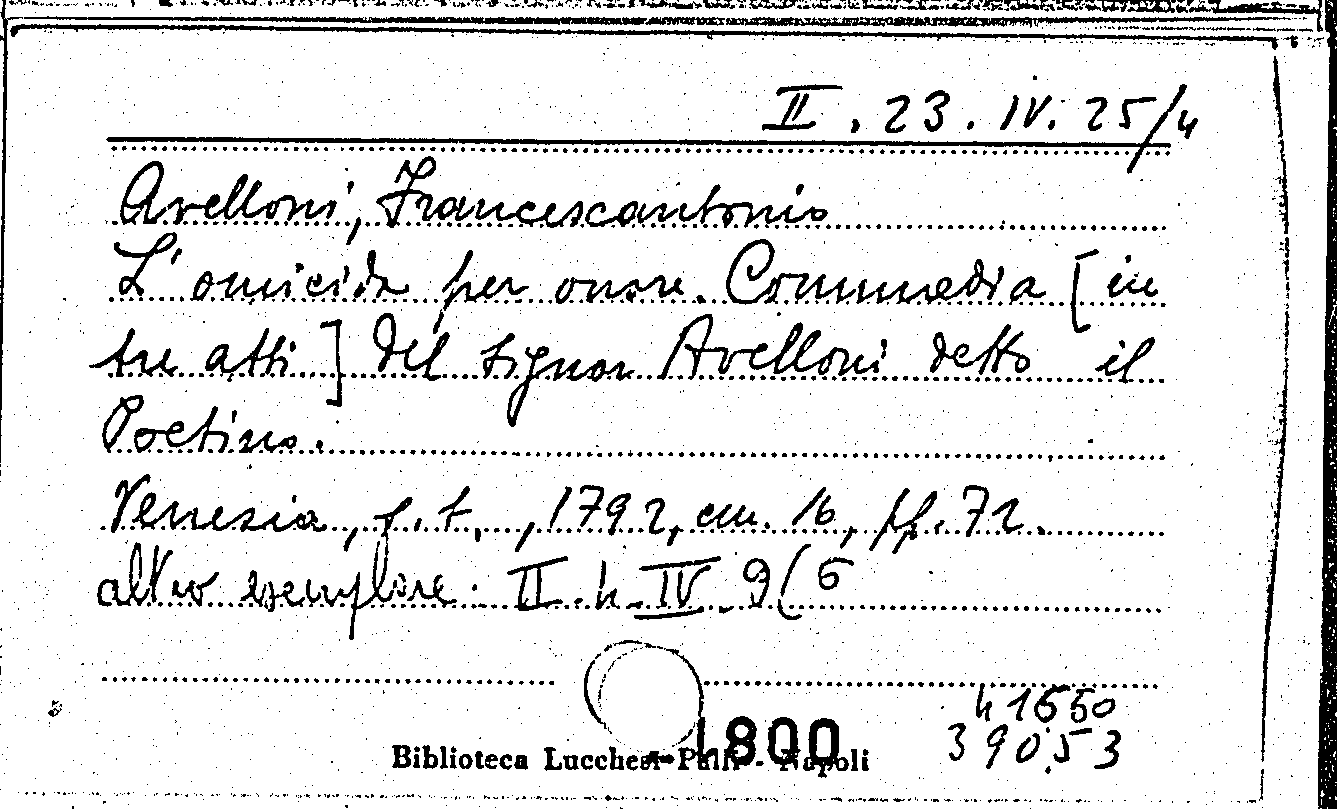 II. 23. IV. 25/4
Avelloni, Francescantonio
L'omicida per onore. Commedia [in
tre atti] del signor Avelloni detto il
Poetino.
Venezia, s.t., 1792, cm. 16, pp. 72.
altro esemplare: II. 4. IV 9(6
41550
39053
1800
Biblioteca Lucchesi-Palli - Napoli